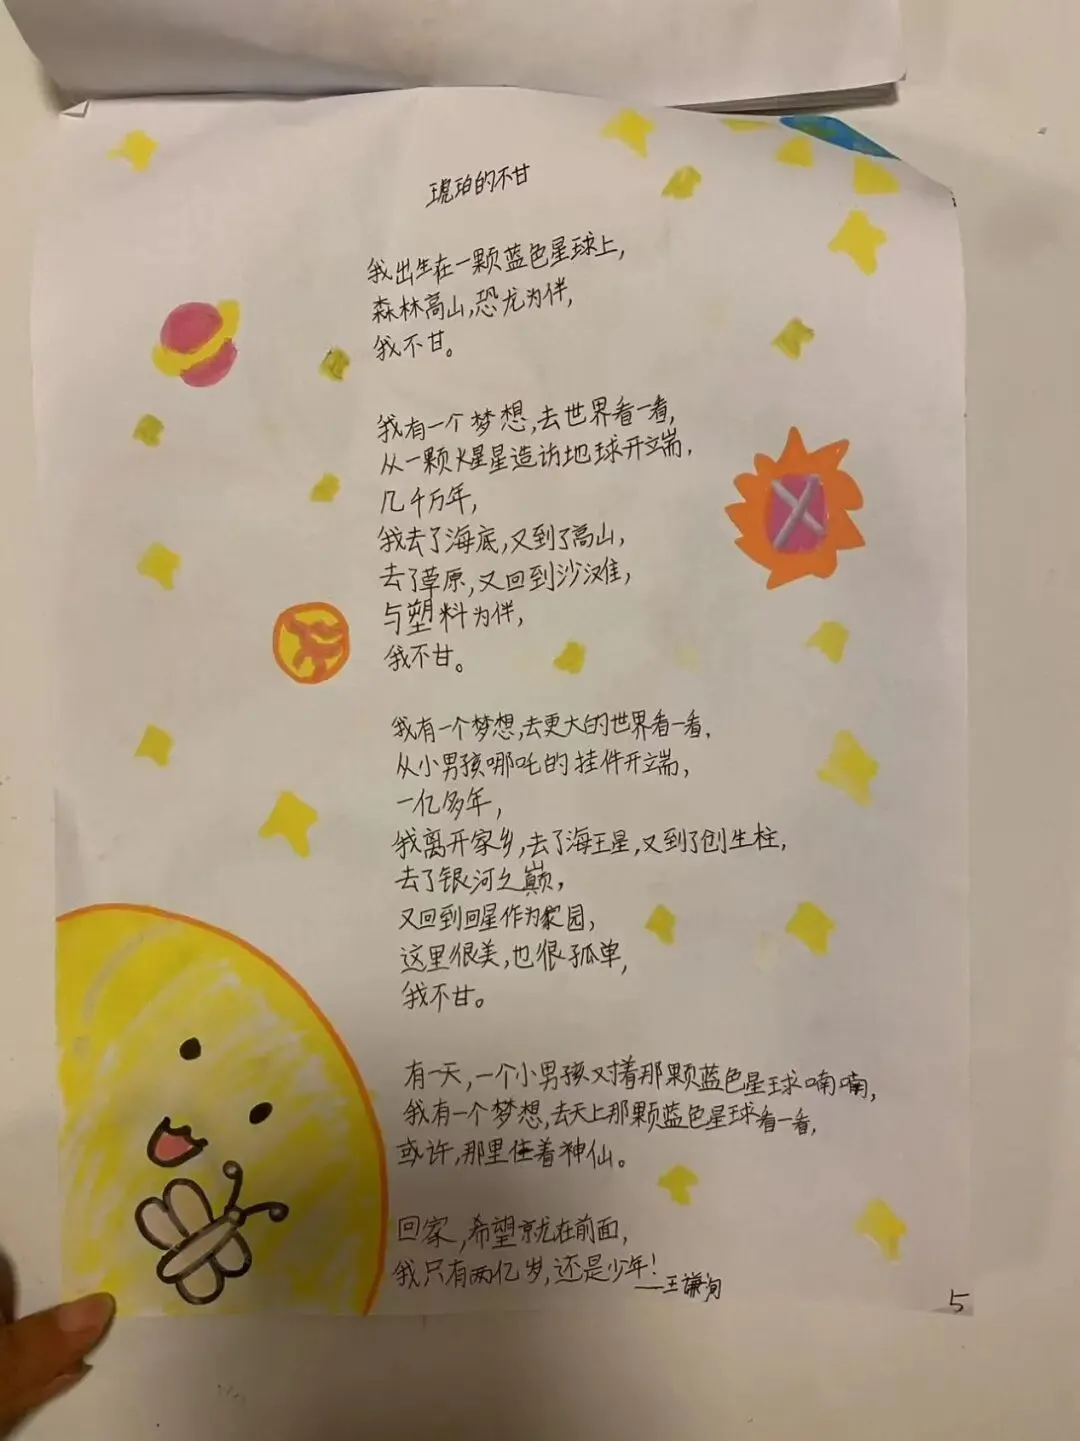 琥珀的不甘
我出生在一颗蓝色星球上,
森林高山,恐龙为伴,
我不甘。
我有一个梦想,去世界看一看,
从一颗火星星造访地球开端,
几千万年,
我去了海底,又到了高山,
去了草原,又回到沙滩,
与塑料为伴,
我不甘。
我有一个梦想,去更大的世界看一看,
从小男孩哪吒的挂件开端,
一亿多年,
我离开家乡,去了海王星,又到了创生柱,
去了银河之巅,
又回到回星作为家园,
这里很美,也很孤单,
我不甘。
有一天,一个小男孩对着那颗蓝色星球喃喃,
我有一个梦想,去天上那颗蓝色星球看一看,
或许,那里住着神仙。
回家,希望就在前面,
我只有两亿岁,还是少年!——王谦洵
5